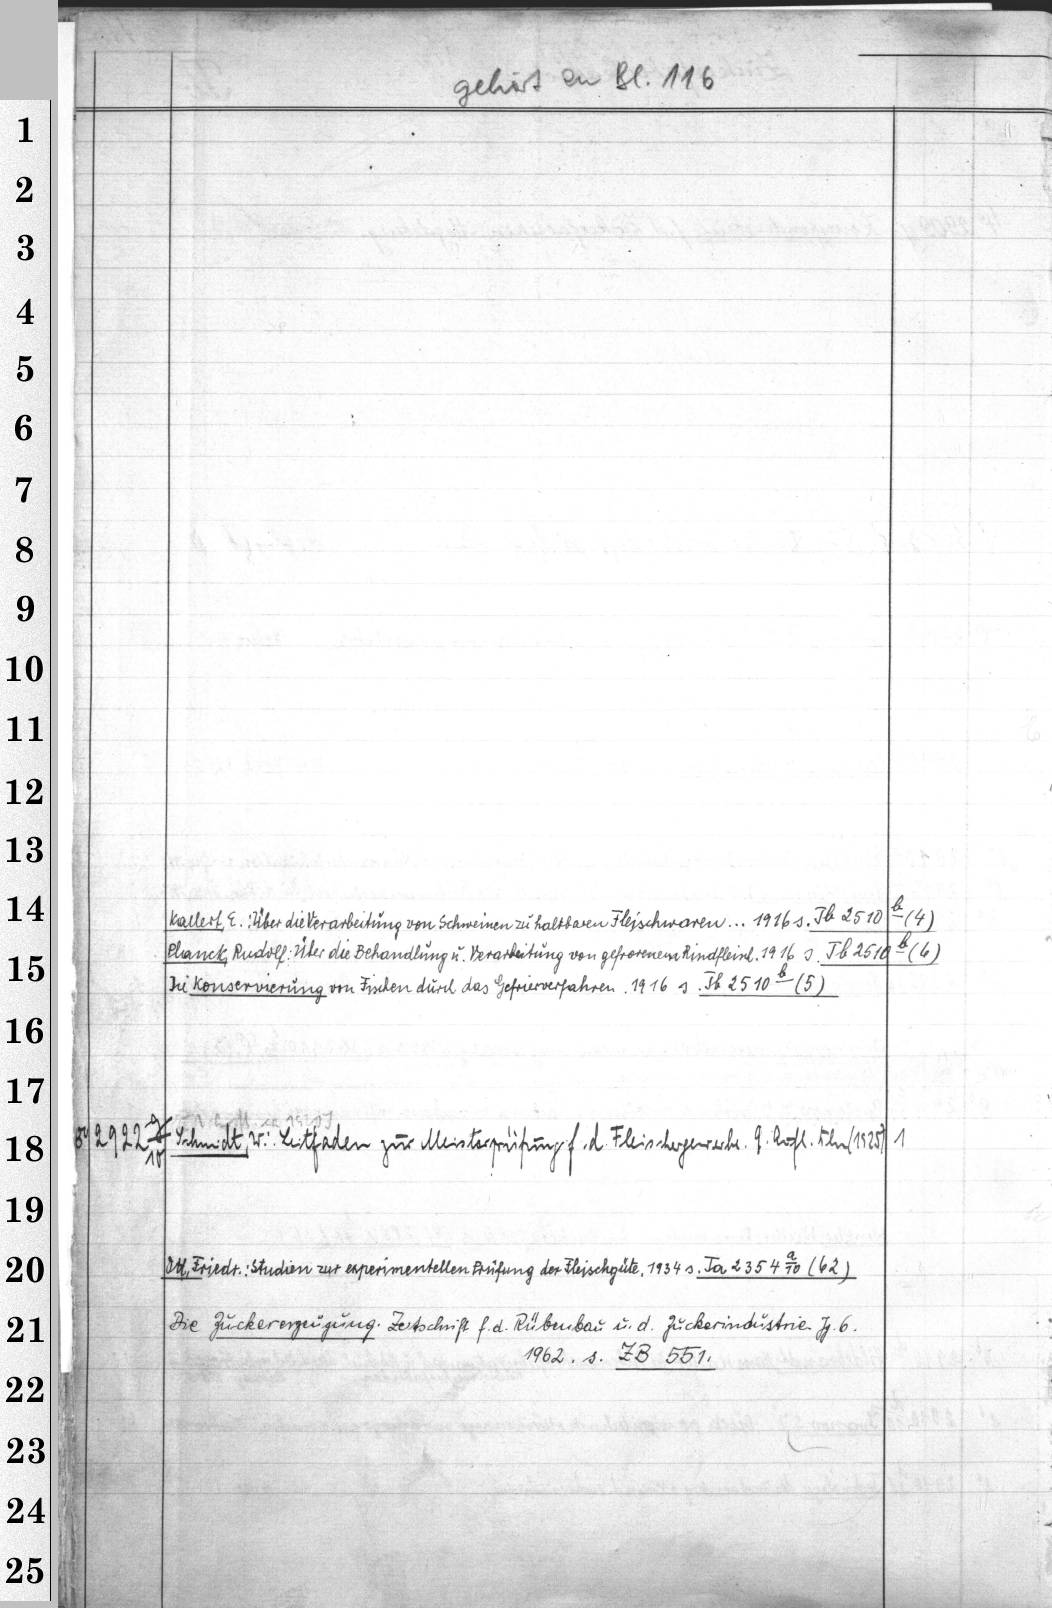 gehört zu Bl. 116
1
2
3
4
5
6
7
8
9
10
11
12
13
14
Kallert, E.: Über die Verarbeitung von Schweinen zu haltbaren Fleischwaren... 1916 s. Jb 2510 b (4)
Planck, Rudolf: Über die Behandlung u. Verarbeitung von gefrorenem Rindfleisch. 1916 s. Jb 2510 b (6)
15
Die Konservierung von Fischen durch das Gefrierverfahren. 1916 s. Jb 2510 b (5)
16
17
18
8° 2922 Schmidt, W.: Leitfaden zur Meisterprüfung f. d. Fleischergewerbe. 9. Aufl. Köln (1925) 1
19
20
Ott, Friedr.: Studien zur experimentellen Prüfung der Fleischgüte, 1934 s. Ja 2354 a/70 (62)
21
Die Zuckererzeugung. Zeitschrift f. d. Rübenbau u. d. Zuckerindustrie. Jg. 6.
1962. s. ZB 551.
22
23
24
25